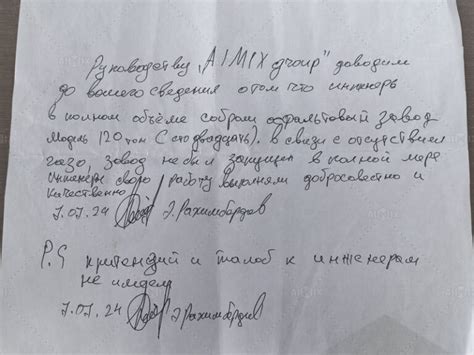 Руководству "AIMIX group" доводим
до вашего сведения о том что инженер
в полном объёме собрали асфальтовый завод
модель 120 тон (сто двадцать). В связи с отсутствием
газо, завод не был запущен в полной мере
инженеры свою работу выполняли добросовестно и
качественно
7.07.24 Э. Рахимбердов
P.S критензий и жалоб к инженерам
не имеем
7.07.24 Э. Рахимбердов